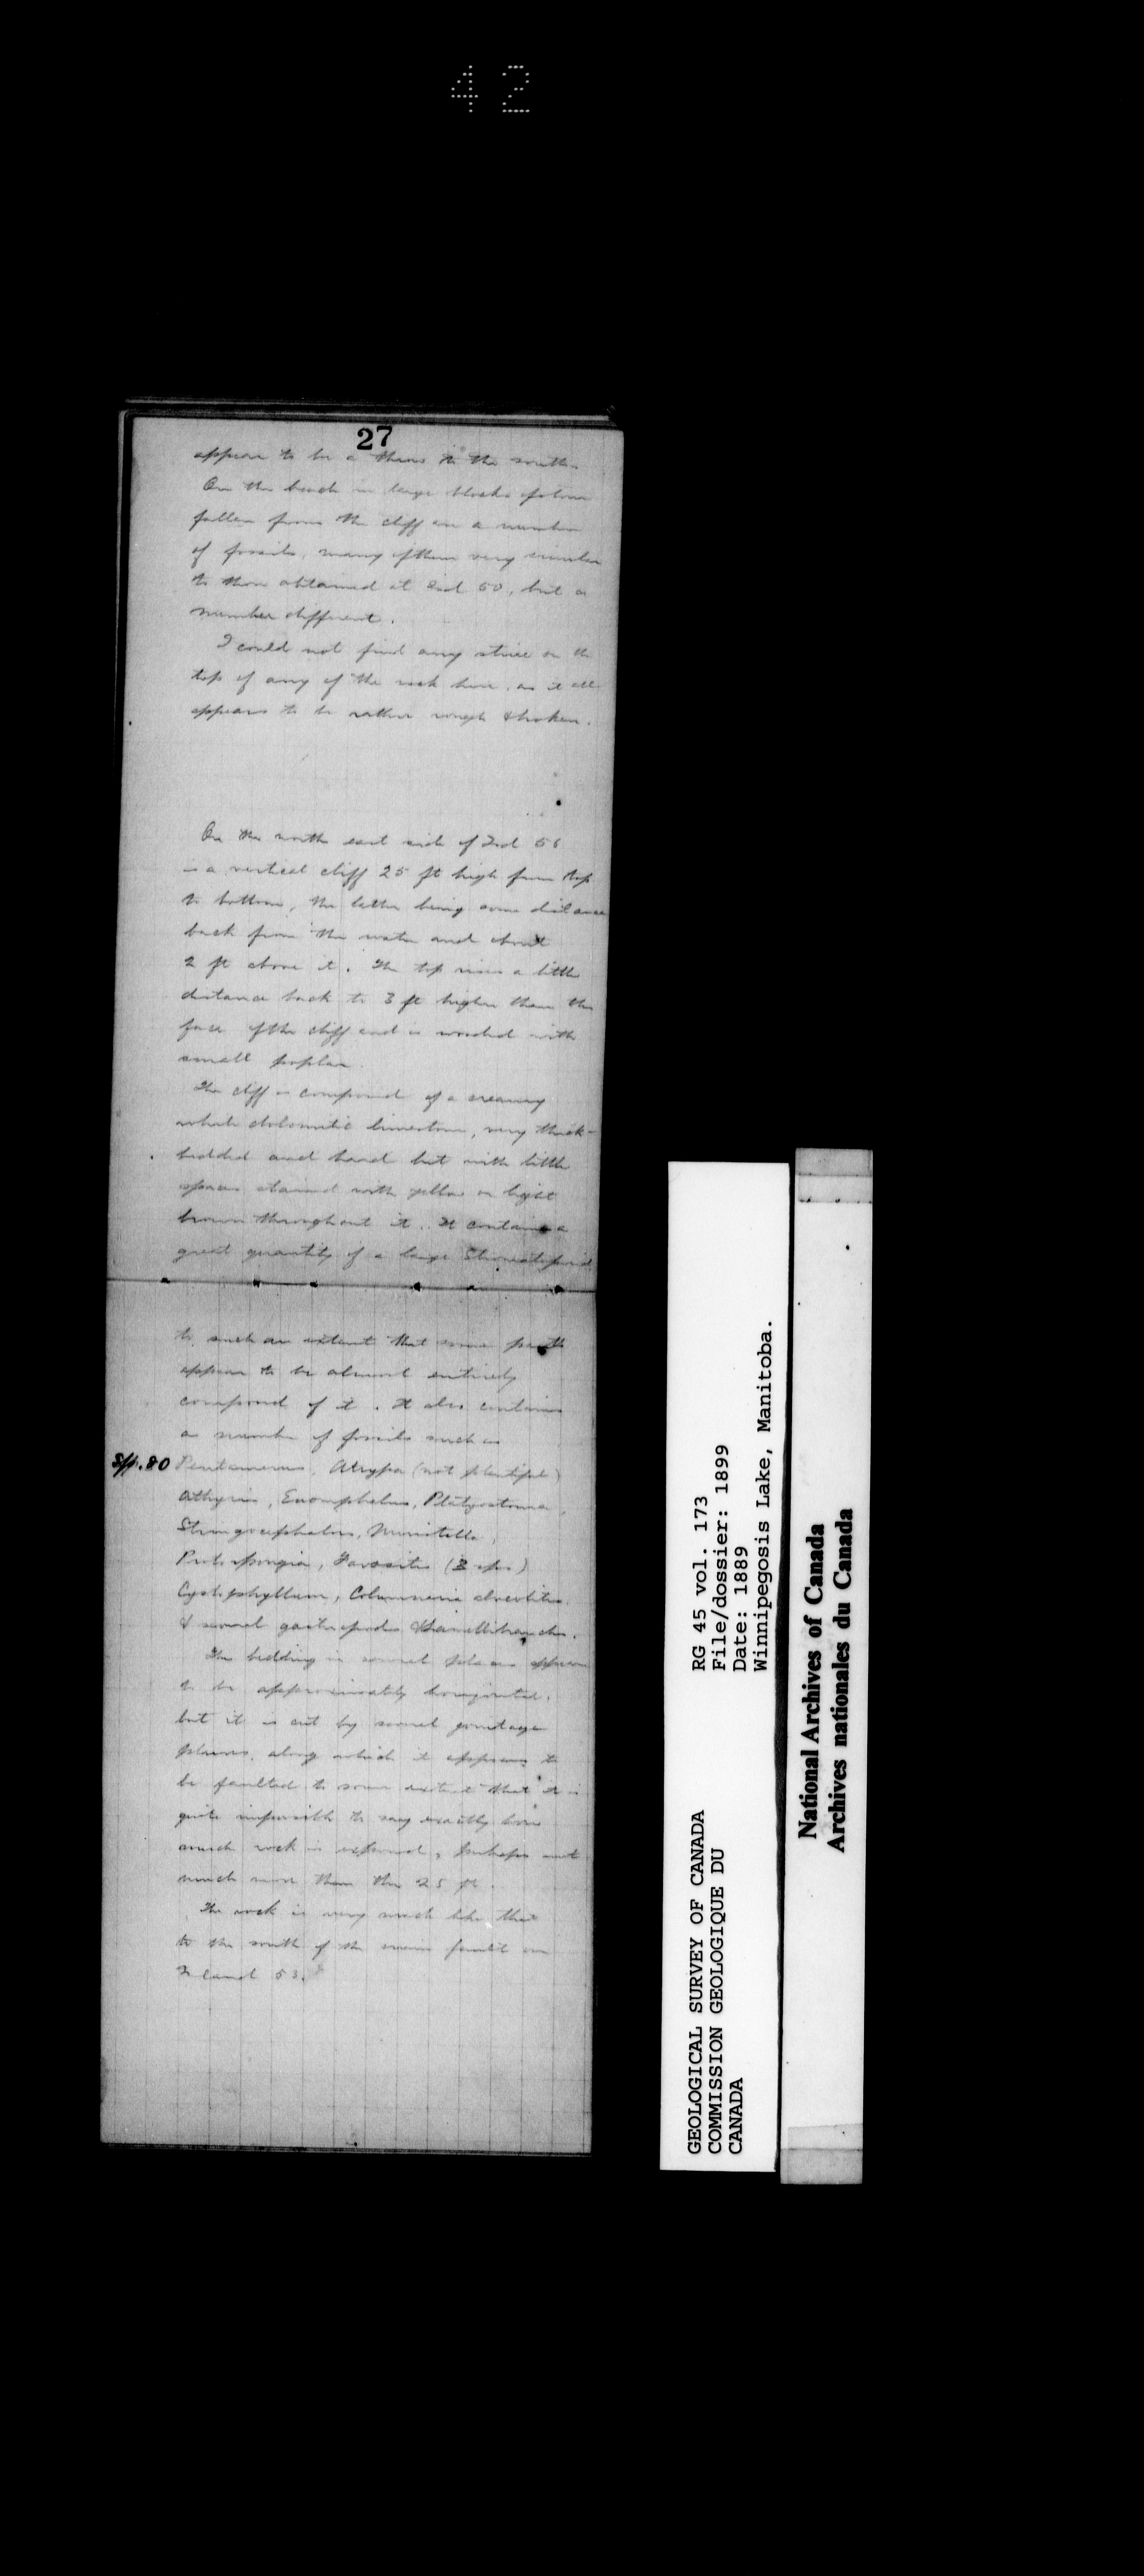 42
27
appear to be a throw to the south.
On the beach in large blocks of stone
fallen from the cliff are a number
of fossils, many of them very similar
to those obtained at Isd 50, but a
number different.
I could not find any striae on the
top of any of the rock here, as it all
appears to be rather rough & broken.
On the north east side of Isd 56
is a vertical cliff 25 ft high from top
to bottom, the latter being some distance
back from the water and about
2 ft above it. The top rises a little
distance back to 3 ft higher than the
face of the cliff and is wooded with
small poplar.
The cliff is composed of a creamy
white dolomitic limestone, very thick-
bedded and hard but with little
spaces stained with yellow or light
brown throughout it. It contains a
great quantity of a large Stromatoporoid
to such an extent that some parts
appear to be almost entirely
composed of it. It also contains
a number of fossils such as
Spp. 80 Pentamerus, Atrypa (not plentiful)
Athyris, Euomphalus, Platyostoma,
Stringocephalus, Murchisonia,
Protospongia, Favosites (3 sps)
Cystiphyllum, Columnaria alveolites
& several gasteropods & lamellibranchs.
The bedding in several places appears
to be approximately horizontal,
but it is cut by several jointage
planes, along which it appears to
be faulted to some extent that it is
quite impossible to say exactly how
much rock is exposed, perhaps not
much more than the 25 ft.
The rock is very much like that
to the south of the main fault on
Island 53.
RG 45 vol. 173
File/dossier: 1899
Date: 1889
Winnipegosis Lake, Manitoba.
GEOLOGICAL SURVEY OF CANADA
COMMISSION GEOLOGIQUE DU
CANADA
National Archives of Canada
Archives nationales du Canada